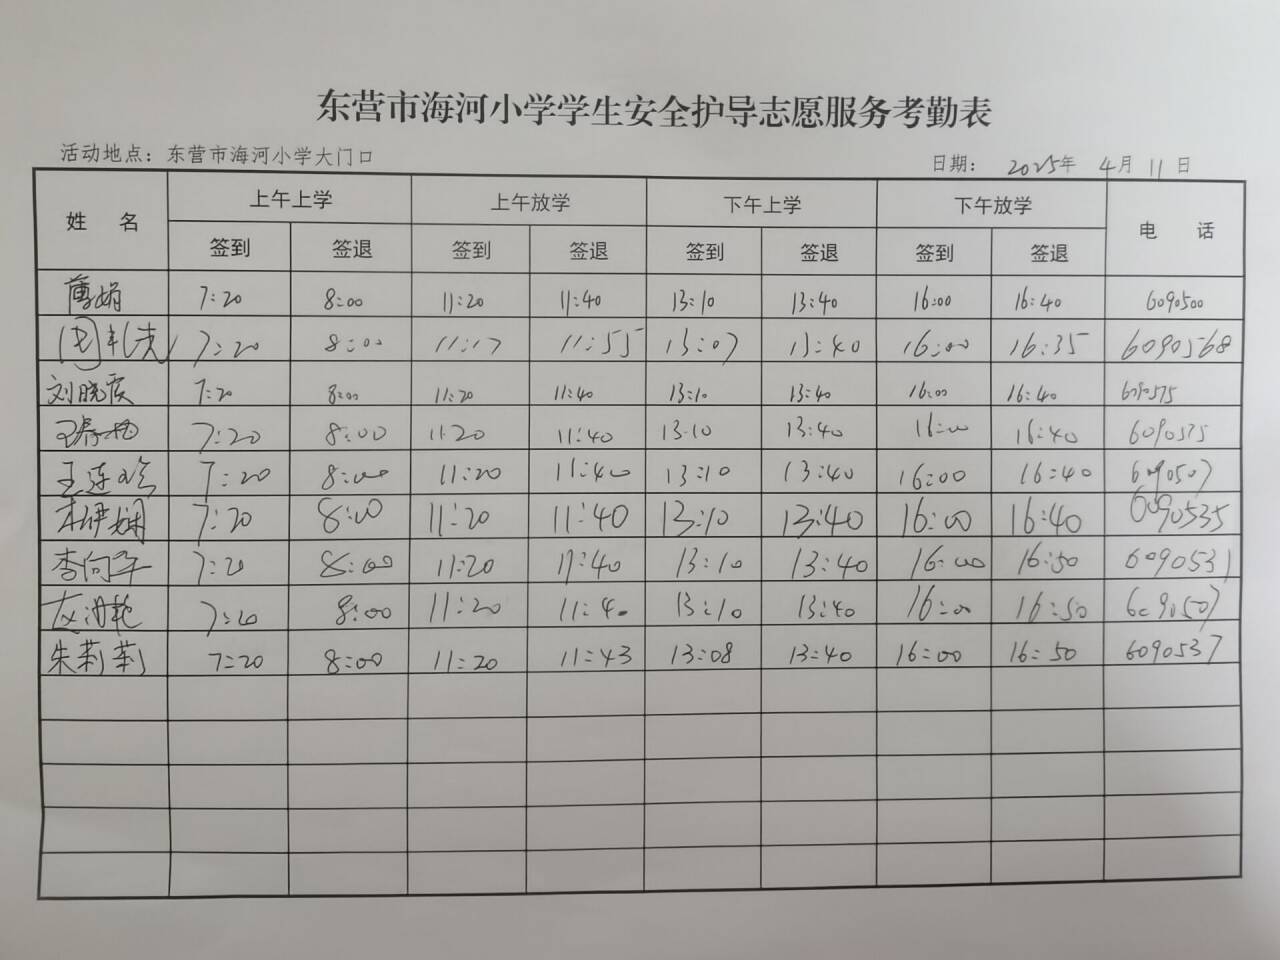 东营市海河小学学生安全护导志愿服务考勤表
活动地点：东营市海河小学大门口 日期： 2025年 4月 11日
姓 名 上午上学 上午放学 下午上学 下午放学 电 话
签到 签退 签到 签退 签到 签退 签到 签退
薄娟 7:20 8:00 11:20 11:40 13:10 13:40 16:00 16:40 6090500
7:20 8:00 11:17 11:55 13:07 13:40 16:00 16:35 6090568
刘晓霞 7:20 8:00 11:20 11:40 13:10 13:40 16:00 16:40 6090575
王春梅 7:20 8:00 11:20 11:40 13:10 13:40 16:00 16:40 6090575
王连珍 7:20 8:00 11:20 11:40 13:10 13:40 16:00 16:40 6090507
杜伊娴 7:20 8:00 11:20 11:40 13:10 13:40 16:00 16:40 6090535
李向军 7:20 8:00 11:20 11:40 13:10 13:40 16:00 16:50 6090531
7:20 8:00 11:20 11:40 13:10 13:40 16:00 16:50 6090507
朱莉莉 7:20 8:00 11:20 11:43 13:08 13:40 16:00 16:50 6090537